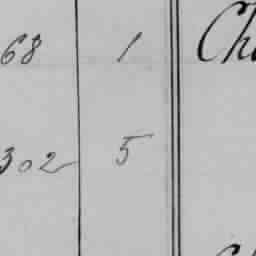 68 1 Ch
302 5